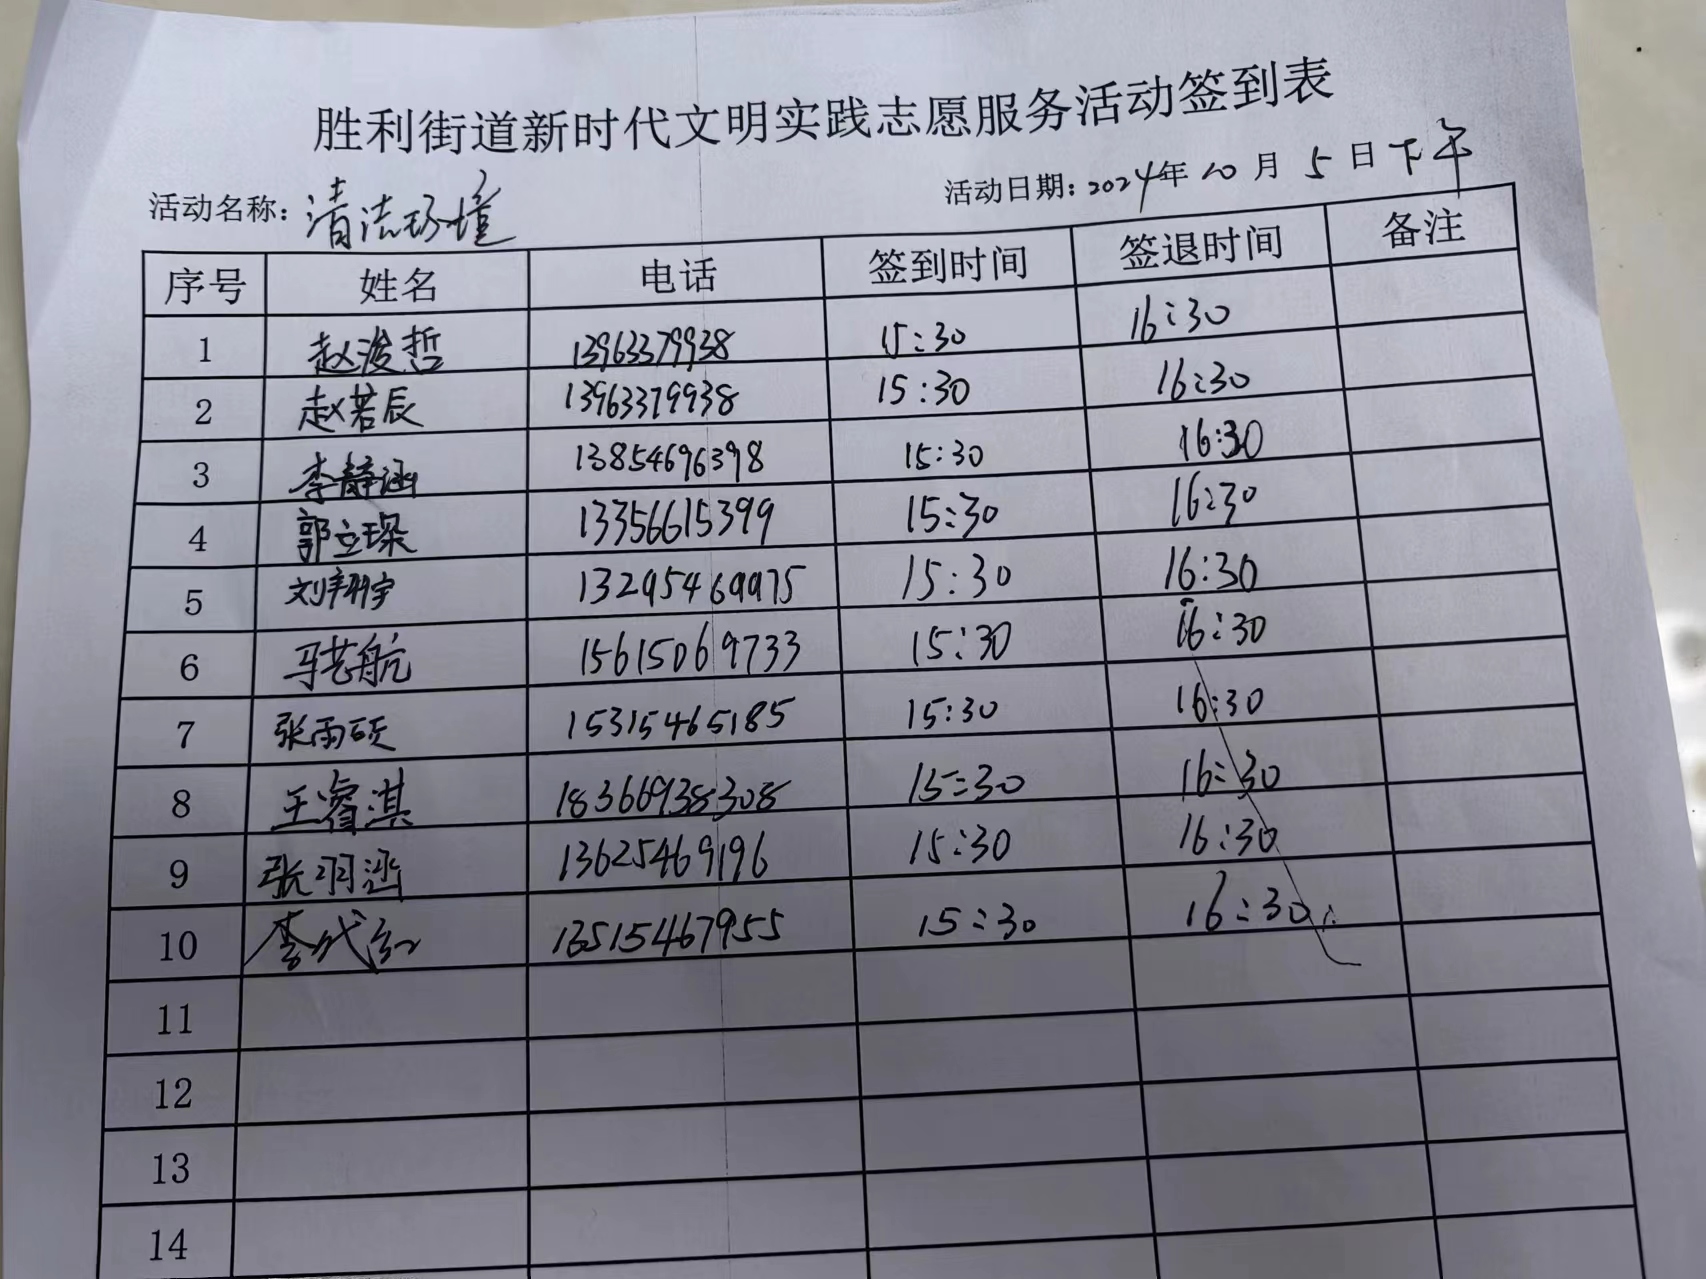 胜利街道新时代文明实践志愿服务活动签到表
活动名称：清洁环境 活动日期：2024年10月5日下午
序号 姓名 电话 签到时间 签退时间 备注
1 赵浚哲 13963379938 15:30 16:30
2 赵若辰 13963379938 15:30 16:30
3 李静涵 13854696398 15:30 16:30
4 郭立琛 13356615399 15:30 16:30
5 刘翔宇 13295469975 15:30 16:30
6 马艺航 15615069733 15:30 16:30
7 张雨硕 15315465185 15:30 16:30
8 王睿淇 18366938308 15:30 16:30
9 张羽涵 13625469196 15:30 16:30
10 李代红 13515467955 15:30 16:30
11
12
13
14